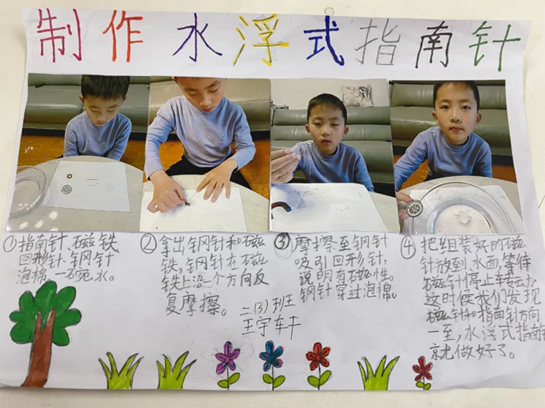 制作水浮式指南针
①指南针、磁铁
回形针、钢针
泡棉、一碗水。
②拿出钢针和磁
铁,钢针在磁
铁上沿一个方向反
复摩擦。
二(3)班
③摩擦至钢针
吸引回形针,
说明有磁性。
钢针穿过泡棉。
④把组装好的磁
针放到水面,等待
磁针停止转动,
这时候我们发现
磁针和指南针方向
一至,水浮式指南针
就做好了。